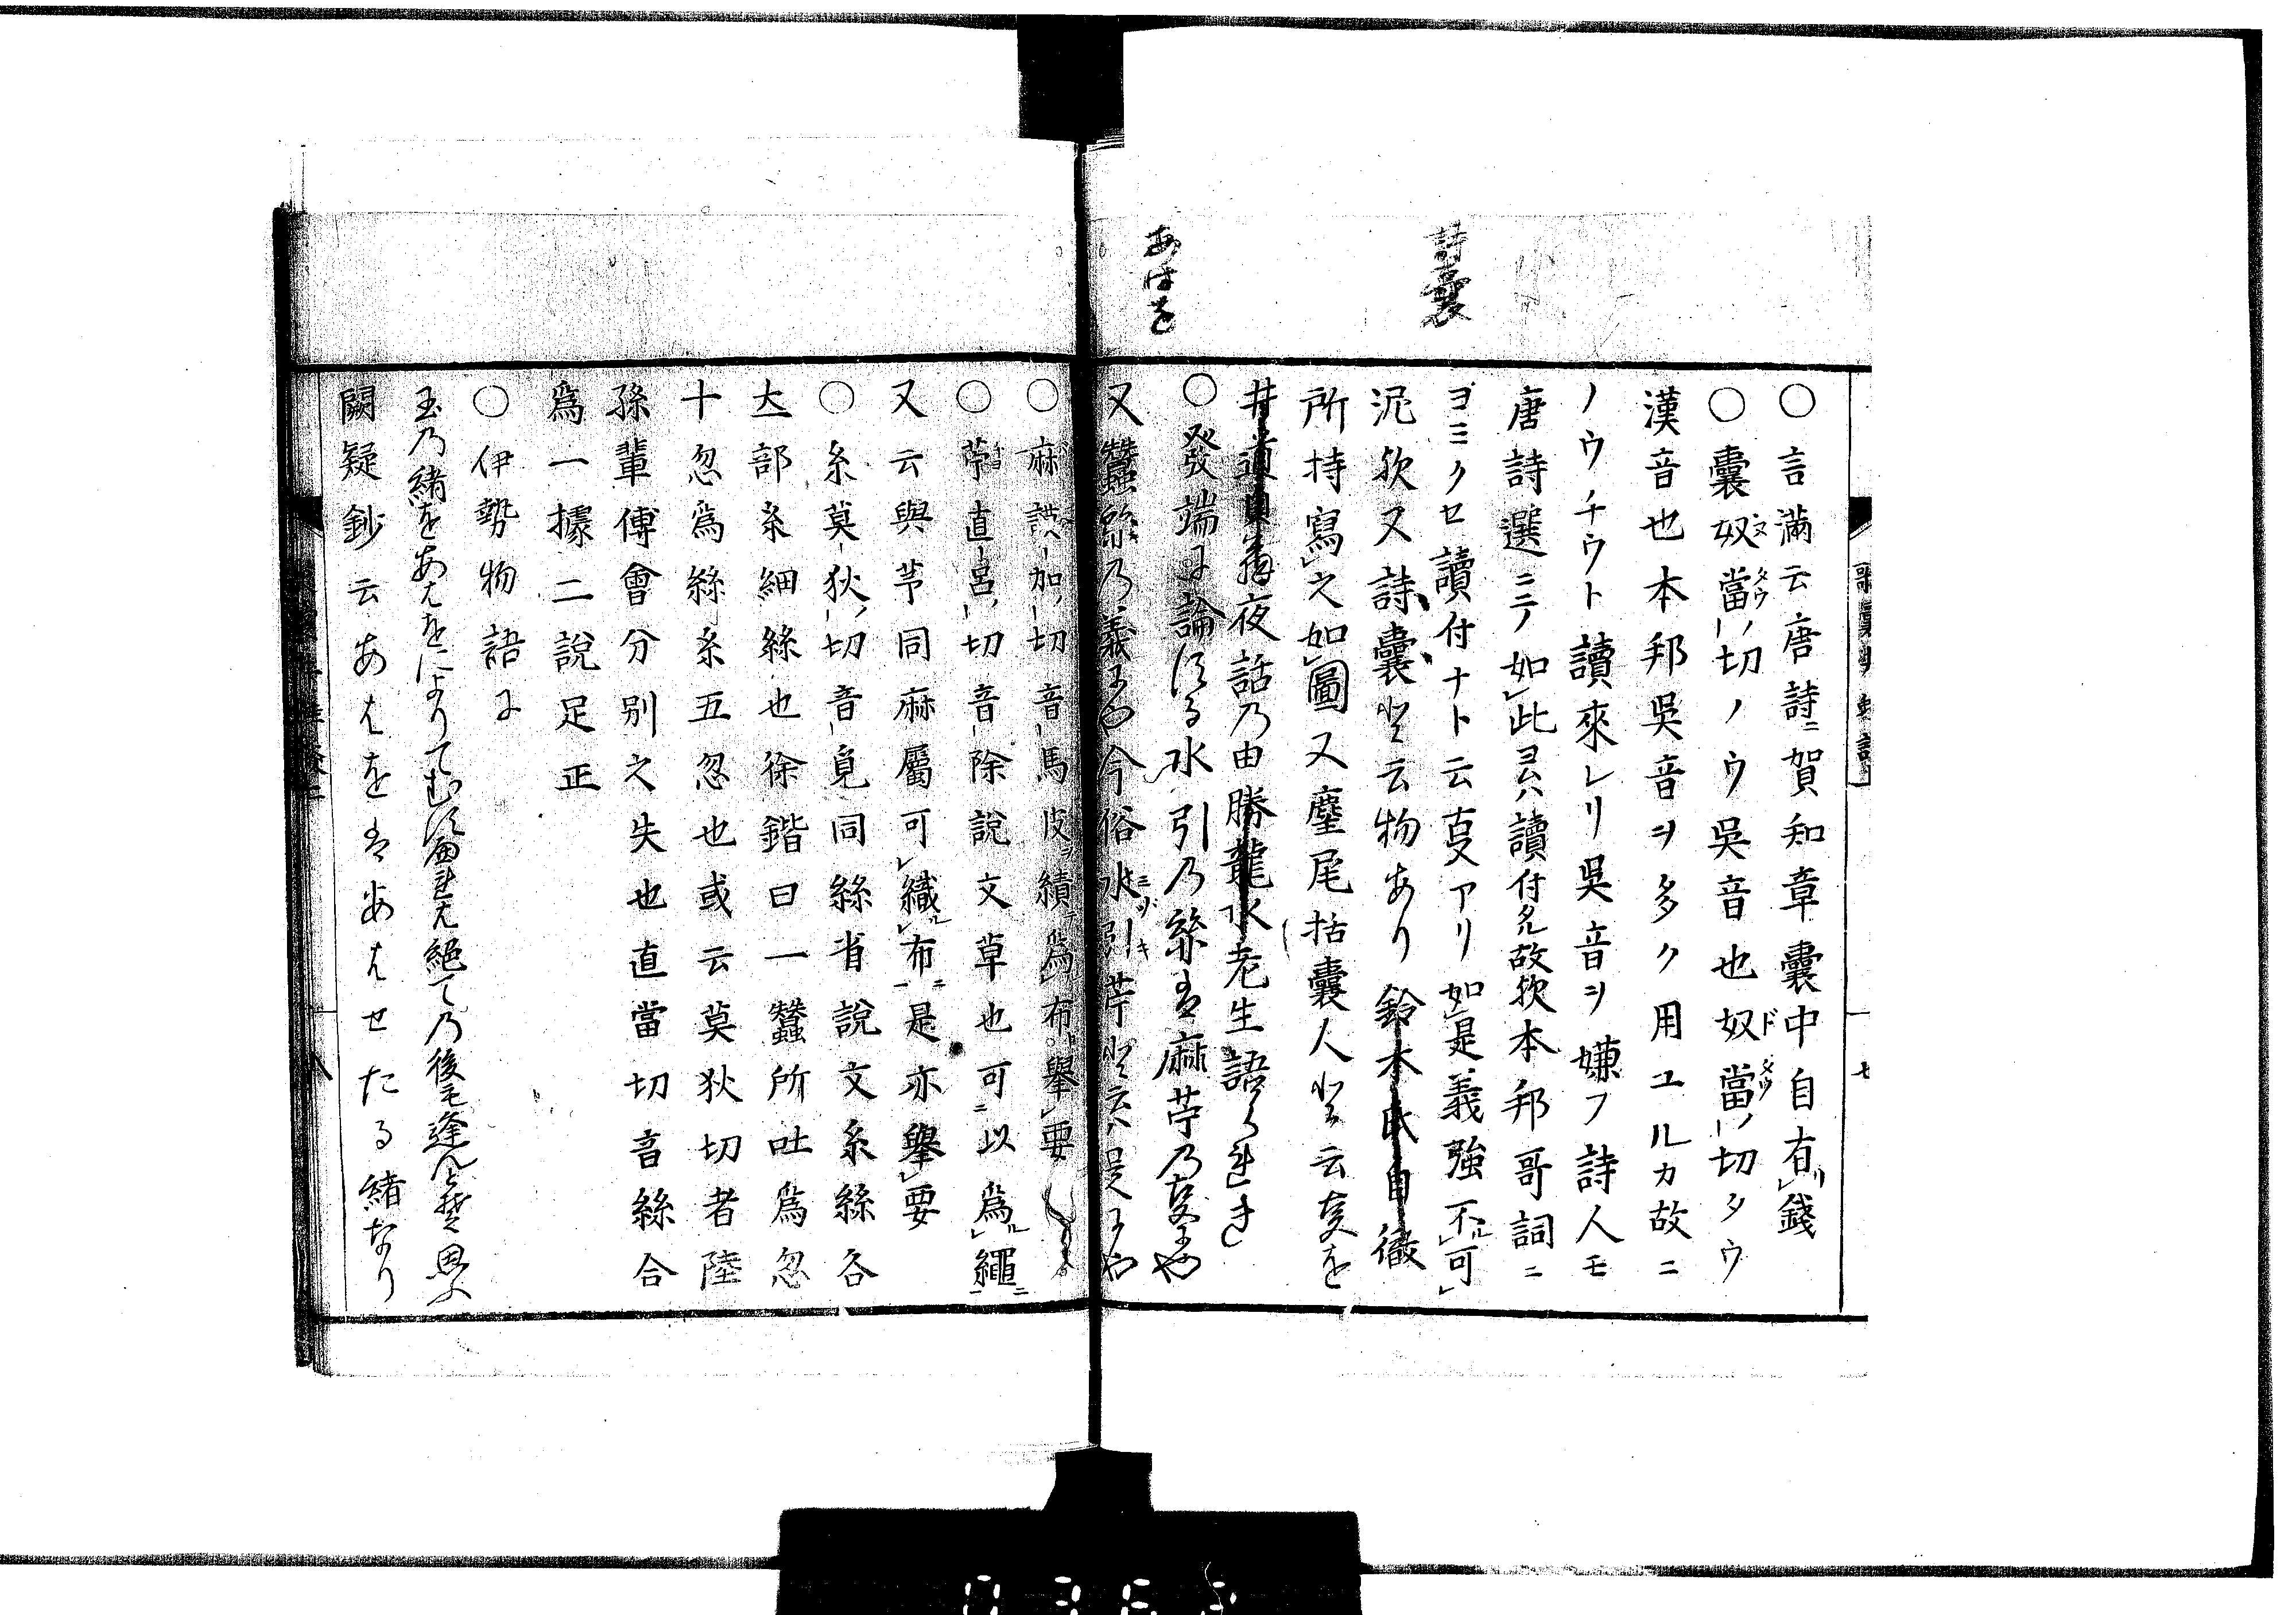 詩囊
あはを
○言滿云唐詩ニ賀知章囊中自有リ錢
○囊奴ヌ當タウノ切ノウ吳音也奴ド當タウノ切タウ
漢音也本邦吳音ヲ多ク用ユルカ故ニ
ノウチウト讀來レリ吳音ヲ嫌フ詩人モ
唐詩選ニ三ノ如此ヨムハ讀付タル故欤本邦哥詞ニ
ヨミクセ讀付ナト云叓アリ如是義強不可
泥欤又詩囊と云物あり鈴木氏自徹
所持寫之如圖又塵尾括囊人と云叓を
井道貞翁夜話乃由勝龍水老生語られき
○發端に論する水引乃絲は麻苧乃叓にや
又蠶絲乃義にや今俗水引ミヅヒキ苧と云ハ是にや
○麻謨加ノ切音馬皮ヲ績テ爲布擧要
○苧直呂ノ切音除說文草也可ニ以爲ル繩ニ
又云與芧同麻屬可織ル布ニ是亦擧要
○糸莫狄ノ切音覓同絲省說文糸絲各
大部糸細絲也徐鍇曰一蠶所吐爲忽
十忽爲絲糸五忽也或云莫狄切者陸
孫輩傅會分別之失也直當切音絲合
爲一據二說足正
○伊勢物語に
玉乃緒をあはをによりてむすへれは絕ての後も逢んとそ思ふ
闕疑鈔云あはをはあはせたる緒なり